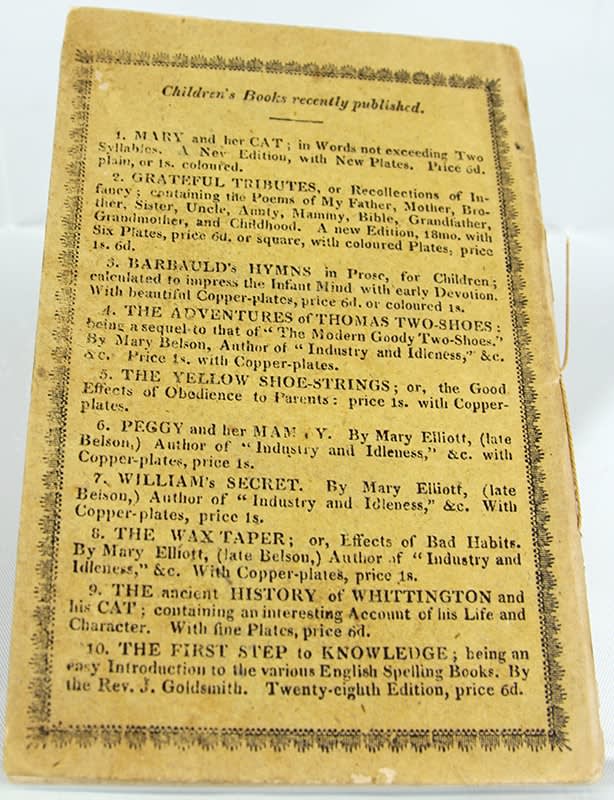 Children's Books recently published.
1. MARY and her CAT; in Words not exceeding Two
Syllables. A New Edition, with New Plates. Price 6d.
plain, or 1s. coloured.
2. GRATEFUL TRIBUTES, or Recollections of In-
fancy; containing the Poems of My Father, Mother, Bro-
ther, Sister, Uncle, Aunty, Mammy, Bible, Grandfather,
Grandmother, and Childhood. A new Edition, 18mo. with
Six Plates, price 6d. or square, with coloured Plates, price
1s. 6d.
3. BARBAULD's HYMNS in Prose, for Children;
calculated to impress the Infant Mind with early Devotion.
With beautiful Copper-plates, price 6d. or coloured 1s.
4. THE ADVENTURES of THOMAS TWO-SHOES:
being a sequel to that of "The Modern Goody Two-Shoes."
By Mary Belson, Author of "Industry and Idleness," &c.
&c. Price 1s. with Copper-plates.
5. THE YELLOW SHOE-STRINGS; or, the Good
Effects of Obedience to Parents: price 1s. with Copper-
plates.
6. PEGGY and her MAM Y. By Mary Elliott, (late
Belson,) Author of "Industry and Idleness," &c. with
Copper-plates, price 1s.
7. WILLIAM's SECRET. By Mary Elliott, (late
Belson,) Author of "Industry and Idleness," &c. With
Copper-plates, price 1s.
8. THE WAX TAPER; or, Effects of Bad Habits.
By Mary Elliott, (late Belson,) Author of "Industry and
Idleness," &c. With Copper-plates, price 1s.
9. THE ancient HISTORY of WHITTINGTON and
his CAT; containing an interesting Account of his Life and
Character. With fine Plates, price 6d.
10. THE FIRST STEP to KNOWLEDGE; being an
easy Introduction to the various English Spelling Books. By
the Rev. J. Goldsmith. Twenty-eighth Edition, price 6d.